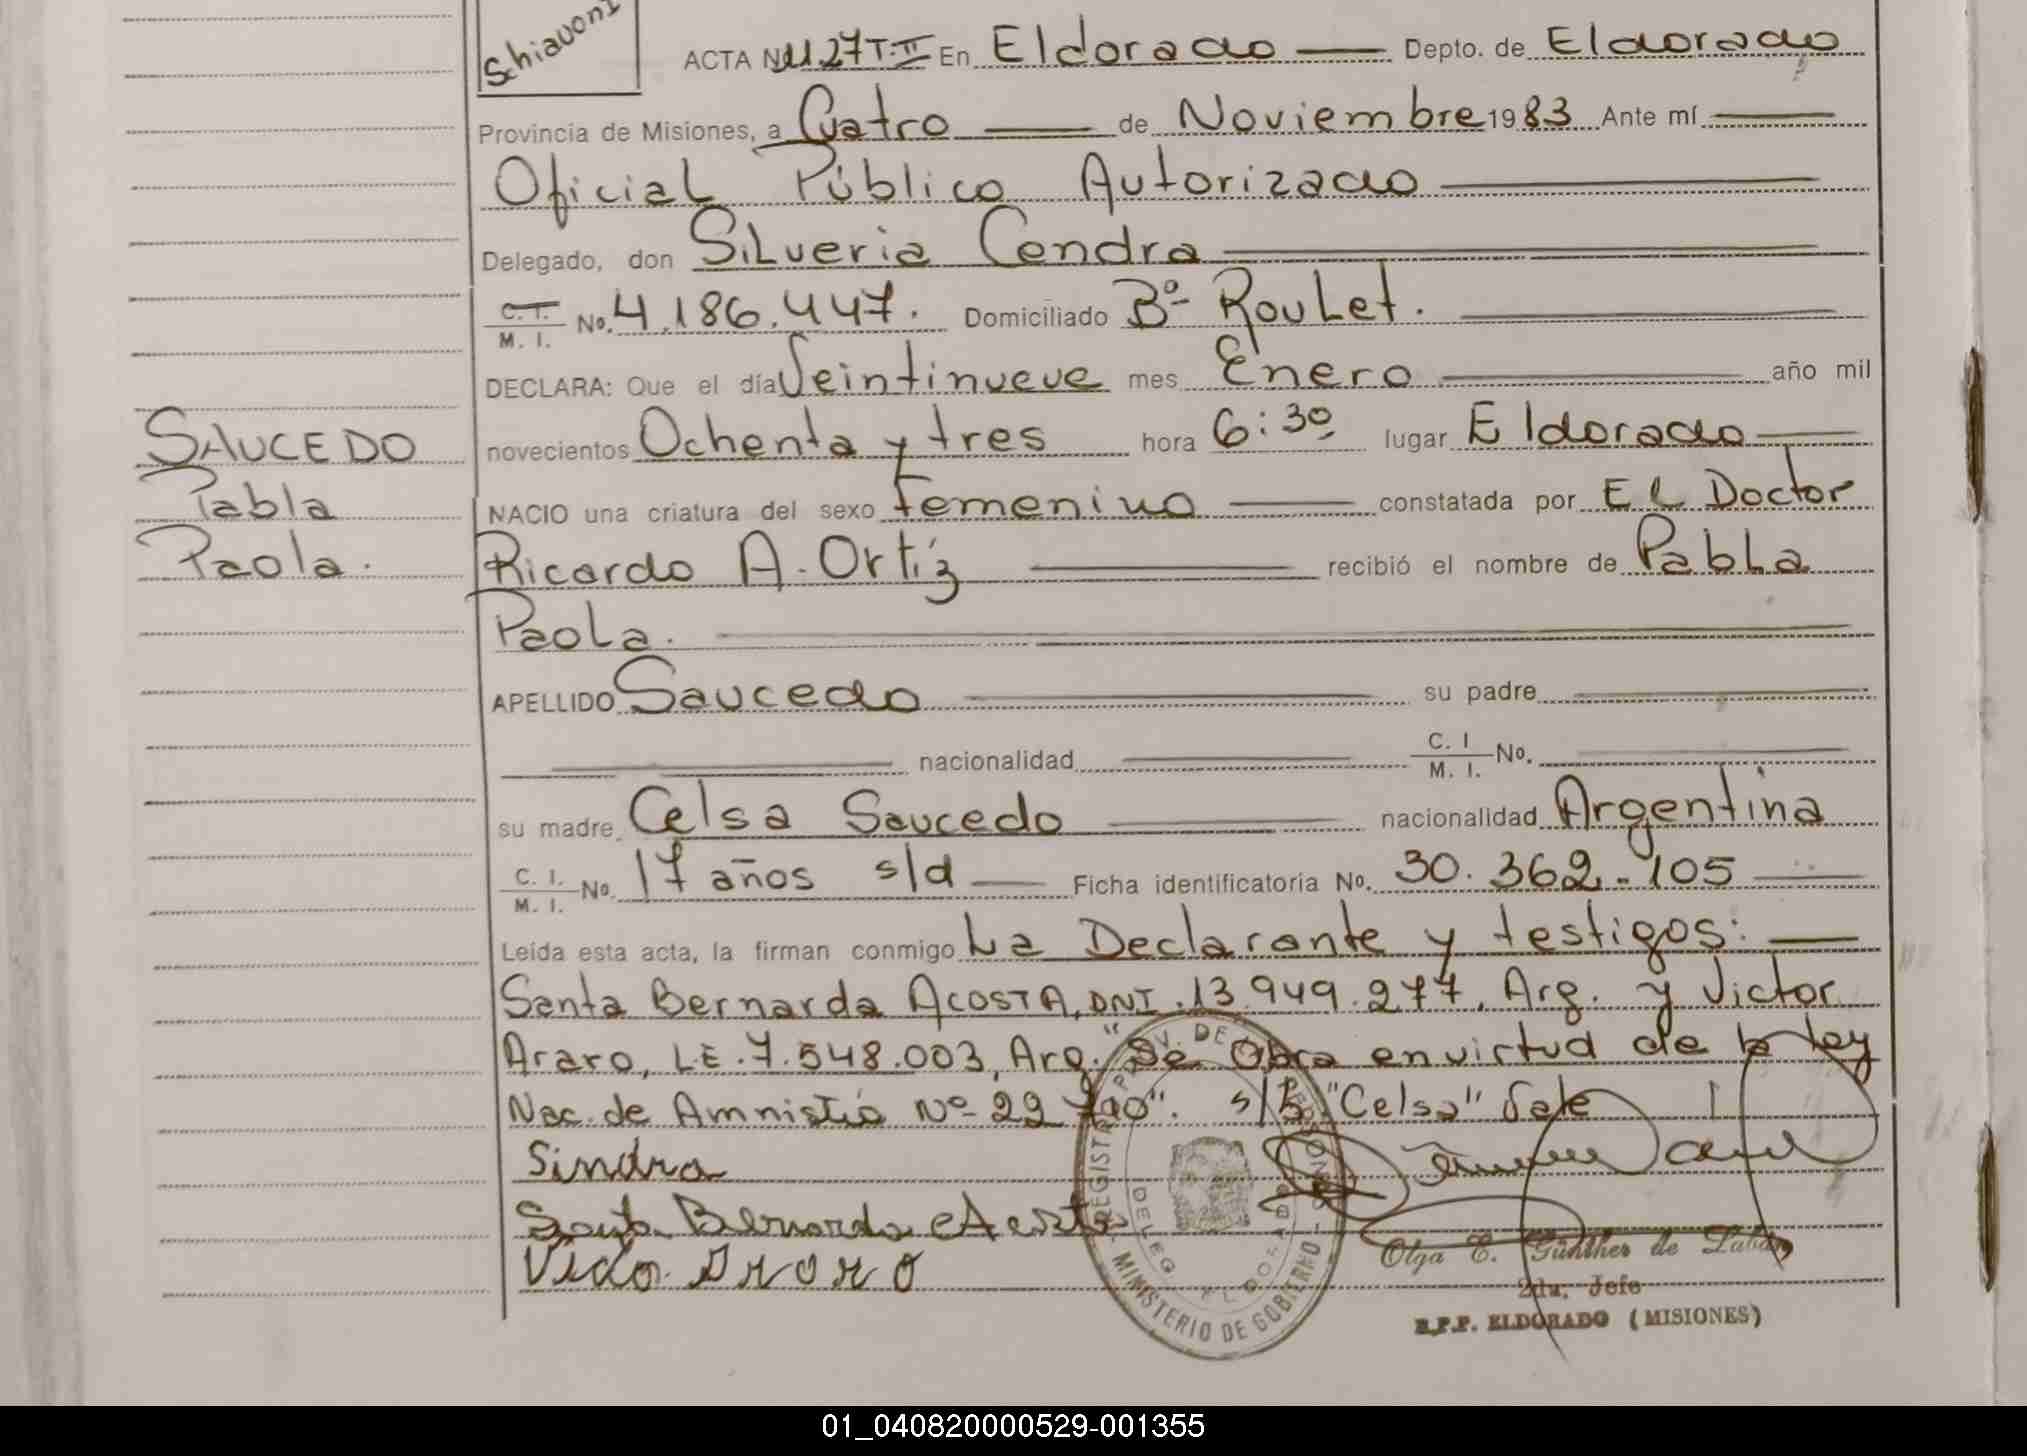 Schiavoni
ACTA No 1127 T. II En Eldorado Depto. de Eldorado
Provincia de Misiones, a Cuatro de Noviembre 1983 Ante mí
Oficial Público Autorizado
Delegado, don Silveria Cendra
C. I. M. I. No. 4.186.447. Domiciliado Bº Roulet.
DECLARA: Que el día Veintinueve mes Enero año mil
novecientos Ochenta y tres hora 6:30 lugar Eldorado
SAUCEDO
Pabla
Paola.
NACIO una criatura del sexo femenino constatada por El Doctor
Ricardo A. Ortíz recibió el nombre de Pabla
Paola.
APELLIDO Saucedo su padre
nacionalidad C. I M. I. No.
su madre Celsa Saucedo nacionalidad Argentina
C. I. M. I. No. 17 años s/d Ficha identificatoria No. 30.362.105
Leída esta acta, la firman conmigo La Declarante y testigos:
Santa Bernarda ACOSTA, DNI. 13.949.277, Arg. y Victor
Araro, LE. 7.548.003, Arg. "Se Obra en virtud de la ley
Nac. de Amnistía Nº 22 s/B "Celsa" Vale
Sindra
Santa Bernarda Acosta
REGISTRO PROV. DE LAS PERSONAS
DELEG. ELDORADO
MINISTERIO DE GOBIERNO
Olga E. Günther de
2da. Jefe
R.P.P. ELDORADO (MISIONES)
01_040820000529-001355